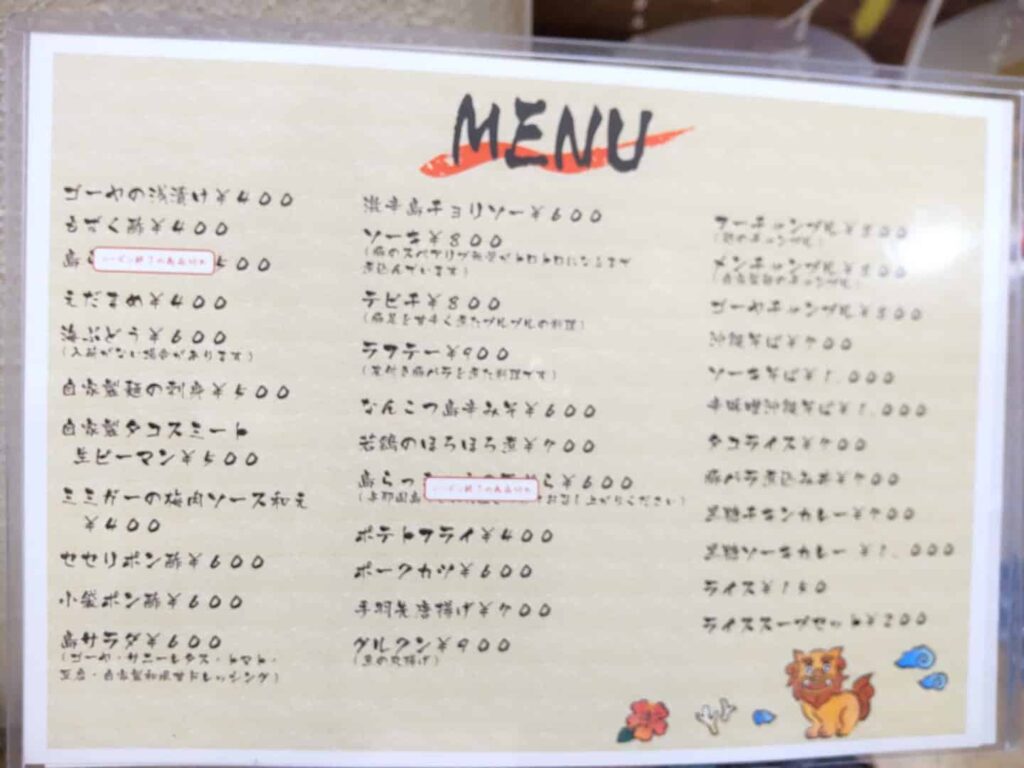 MENU
ゴーヤの浅漬け¥400
もずく酢¥400
島ら
シーズン終了の為品切れ
500
えだまめ¥400
海ぶどう¥600
(入荷がない場合があります)
自家製麺の刺身¥500
自家製タコスミート
生ピーマン¥500
ミミガーの梅肉ソース和え
¥400
セセリポン酢¥600
小袋ポン酢¥600
島サラダ¥600
(ゴーヤ・サニーレタス・トマト・
豆腐・自家製和風甘ドレッシング)
激辛島チョリソー¥600
ソーキ¥800
(豚のスペアリブ軟骨がトロトロになるまで
煮込んでいます)
テビチ¥800
(豚足を甘辛く煮たプルプルの料理)
ラフテー¥900
(皮付き豚バラを煮た料理です)
なんこつ島辛みそ¥600
若鶏のほろほろ煮¥700
島らっ ら¥600
シーズン終了の為品切れ
お召し上がりください)
ポテトフライ¥400
ポークカツ¥600
手羽先唐揚げ¥700
グルクン¥900
(魚の丸揚げ)
フーチャンプル¥800
(麩のチャンプル)
メンチャンプル¥800
(自家製麺のチャンプル)
ゴーヤチャンプル¥800
ソーキそば¥1,000
タコライス¥700
黒糖チキンカレー¥700
黒糖ソーキカレー¥1,000
ライス¥150
ライススープセット¥200